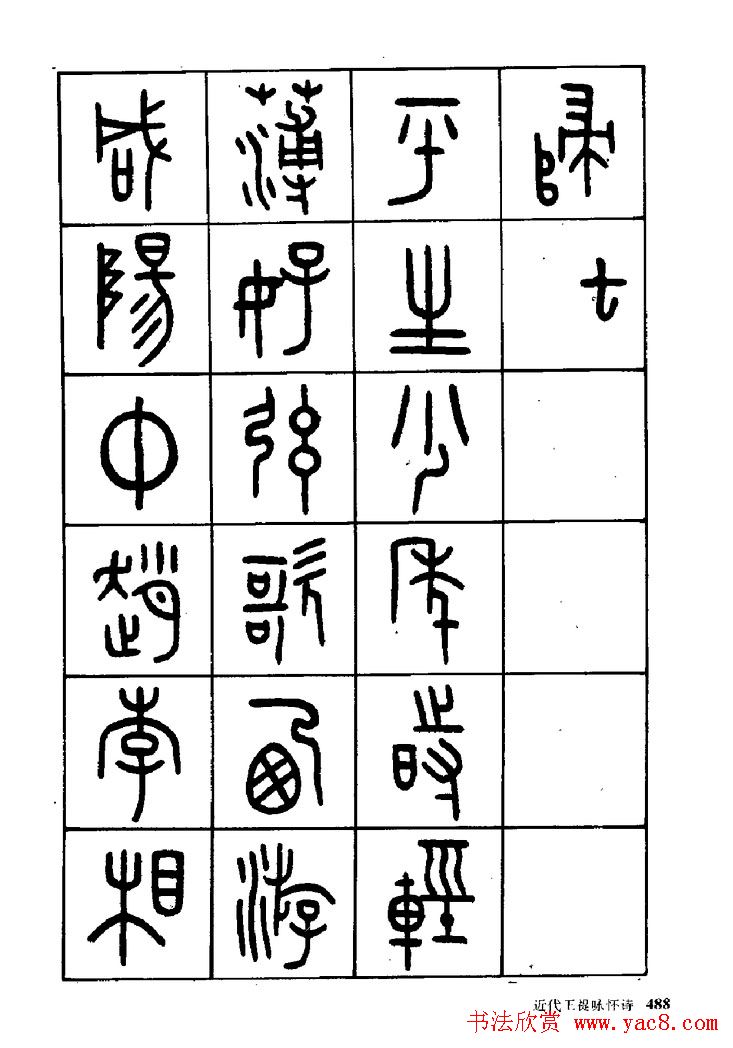 歸七
平生少年時輕
薄好弦歌西游
咸陽中趙李相
近代王禔咏怀诗 488
书法欣赏 www.yac8.com